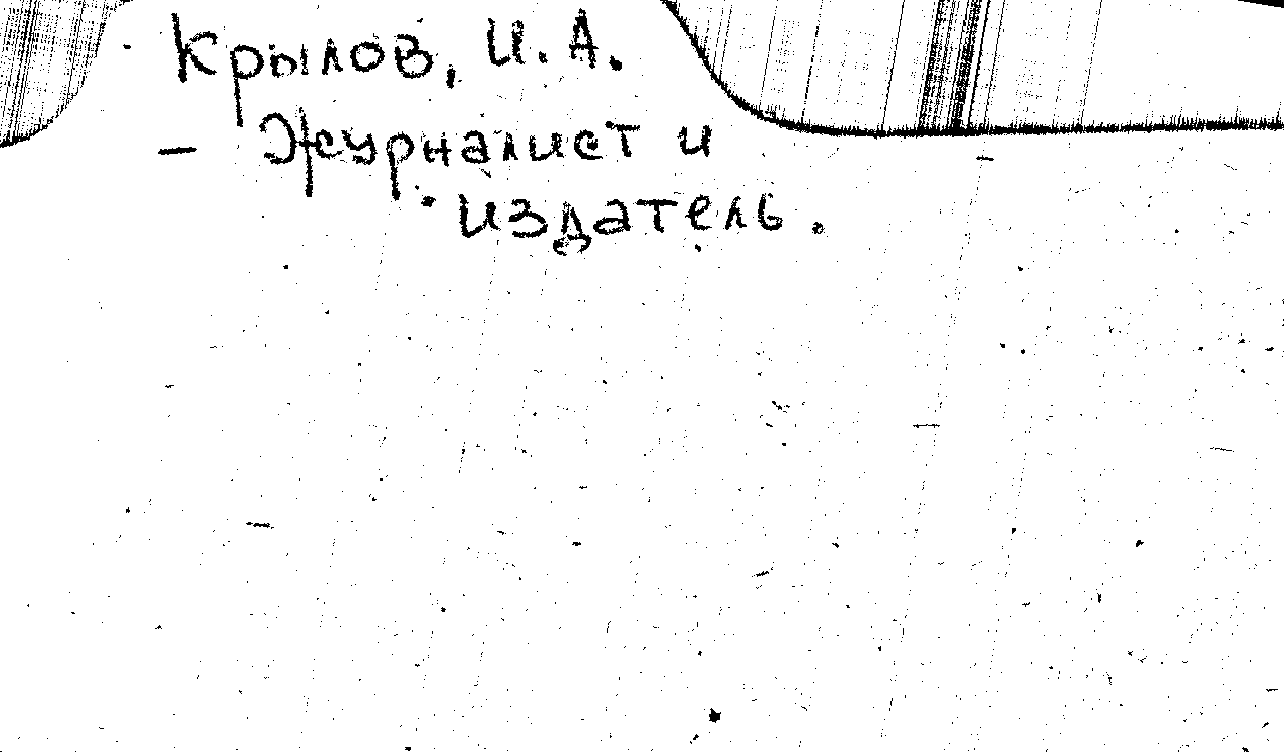 Крылов, И. А.
– Журналист и
издатель.